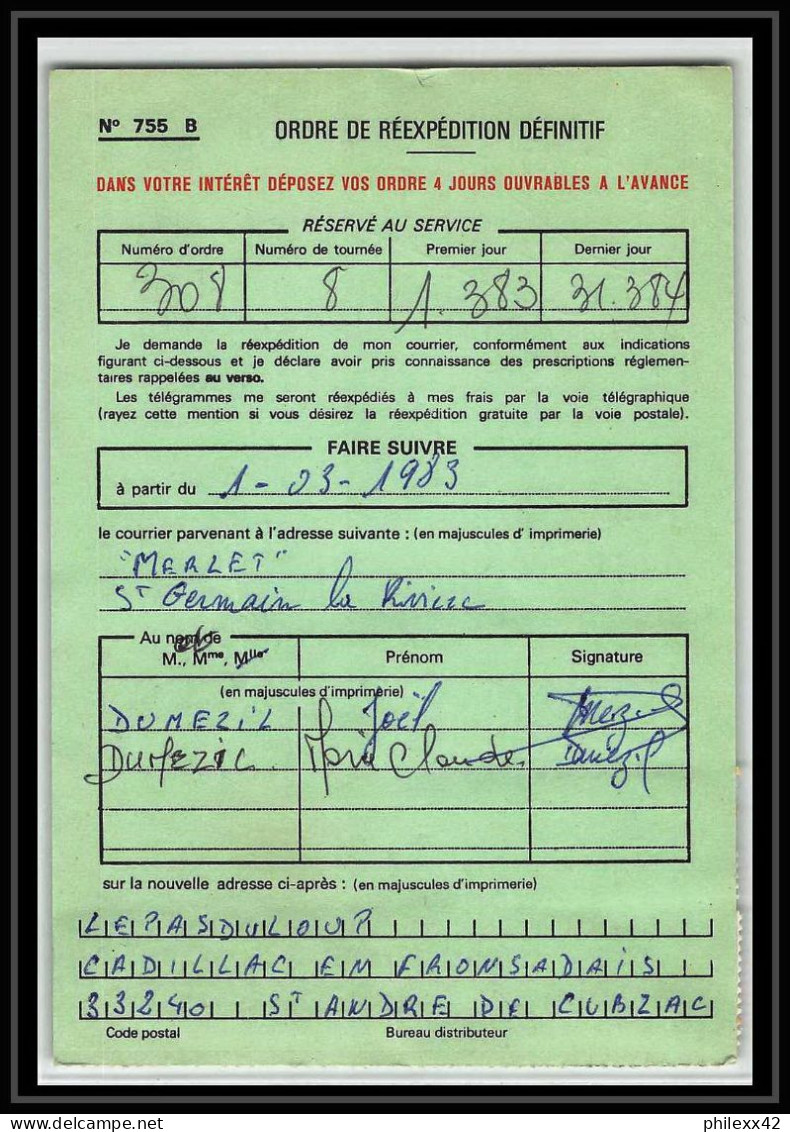 N° 755 B
ORDRE DE RÉEXPÉDITION DÉFINITIF
DANS VOTRE INTÉRÊT DÉPOSEZ VOS ORDRE 4 JOURS OUVRABLES A L'AVANCE
RÉSERVÉ AU SERVICE
Numéro d'ordre Numéro de tournée Premier jour Dernier jour
308 8 1.383 31.384
Je demande la réexpédition de mon courrier, conformément aux indications
figurant ci-dessous et je déclare avoir pris connaissance des prescriptions réglemen-
taires rappelées au verso.
Les télégrammes me seront réexpédiés à mes frais par la voie télégraphique
(rayez cette mention si vous désirez la réexpédition gratuite par la voie postale).
FAIRE SUIVRE
à partir du 1-03-1983
le courrier parvenant à l'adresse suivante : (en majuscules d' imprimerie)
"MERLET"
St Germain la Rivière
Au nom de
M., Mme, Mlle Prénom Signature
(en majuscules d'imprimerie)
DUMEZIL Joël
DUMEZIL Marie Claude
sur la nouvelle adresse ci-après : (en majuscules d'imprimerie)
LE PAS DU LOUP
CADILLAC EM FRONSADAIS
33240 ST ANDRE DE CUBZAC
Code postal Bureau distributeur
philexx42